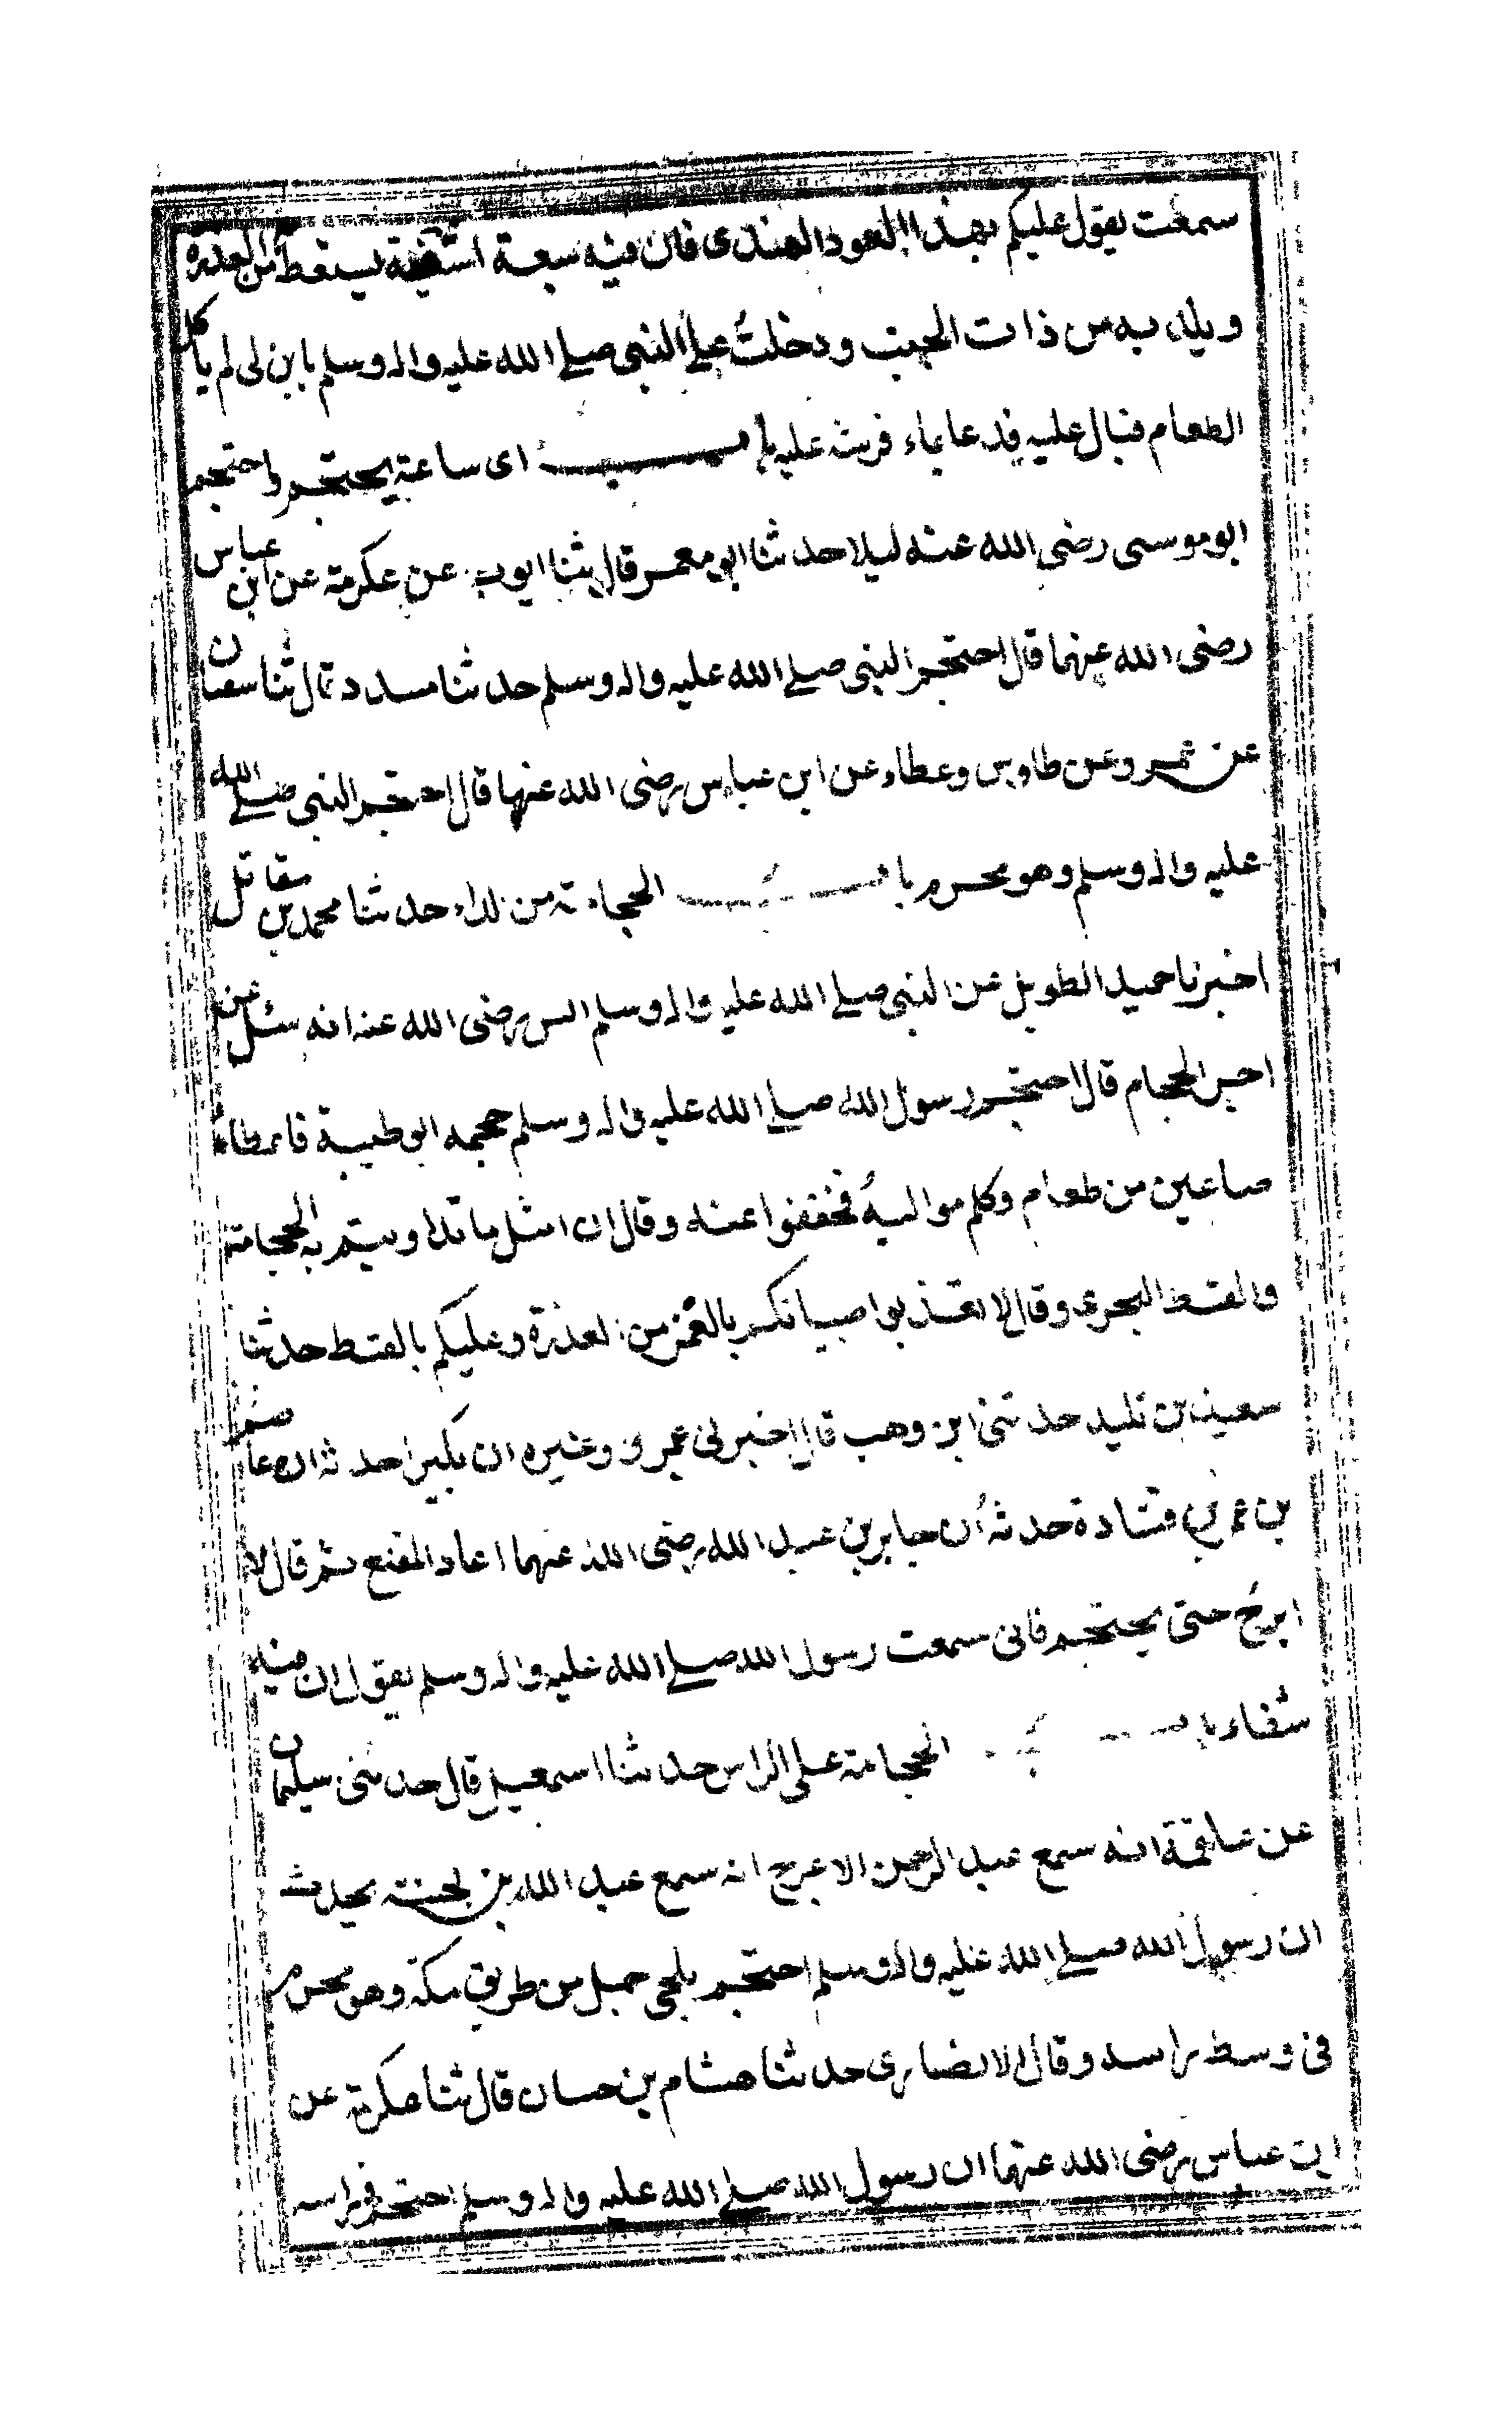 سمعت يقول عليكم بهذا العود الهندى فان فيه سبعة اشفية يستعط من العذرة
ويلد به من ذات الجنب ودخلت على النبى صلے الله عليه واله وسلم بابن لى لم ياكل
الطعام فبال عليه فدعا بماء فرشه عليه باب اى ساعة يحتجم واحتجم
ابو موسى رضى الله عنه ليلا حدثنا ابو معمر قال ثنا ايوب عن عكرمة عن ابن عباس
رضى الله عنهما قال احتجم النبى صلے الله عليه واله وسلم حدثنا مسدد قال ثنا سفيان
عن عمرو عن طاوس وعطاء عن ابن عباس رضى الله عنهما قال احتجم النبى صلے الله
عليه واله وسلم وهو محرم باب الحجامة من الداء حدثنا محمد بن مقاتل
اخبرنا حميد الطويل عن النبى صلے الله عليه واله وسلم انس رضى الله عنه انه سئل عن
اجر الحجام قال احتجم رسول الله صلے الله عليه واله وسلم حجمه ابو طيبة فاعطاه
صاعين من طعام وكلم مواليه فخففوا عنه وقال ان امثل ما تداويتم به الحجامة
والقسط البحرى وقال لا تعذبوا صبيانكم بالغمز من العذرة وعليكم بالقسط حدثنا
سعيد بن تليد حدثنى ابن وهب قال اخبرنى عمرو وغيره ان بكيرا حدثه ان عاصم
بن عمر بن قتادة حدثه ان جابر بن عبد الله رضى الله عنهما اعاد المقنع ثم قال لا
ابرح حتى يحتجم فانى سمعت رسول الله صلے الله عليه واله وسلم يقول ان فيه
شفاء باب الحجامة على الراس حدثنا اسمعيل قال حدثنى سليمان
عن علقمة انه سمع عبد الرحمن الاعرج انه سمع عبد الله بن بحينة يحدث
ان رسول الله صلے الله عليه واله وسلم احتجم بلحى جمل من طريق مكة وهو محرم
فى وسط راسه وقال الانصارى حدثنا هشام بن حسان قال ثنا عكرمة عن
ابن عباس رضى الله عنهما ان رسول الله صلے الله عليه واله وسلم احتجم فى راسه